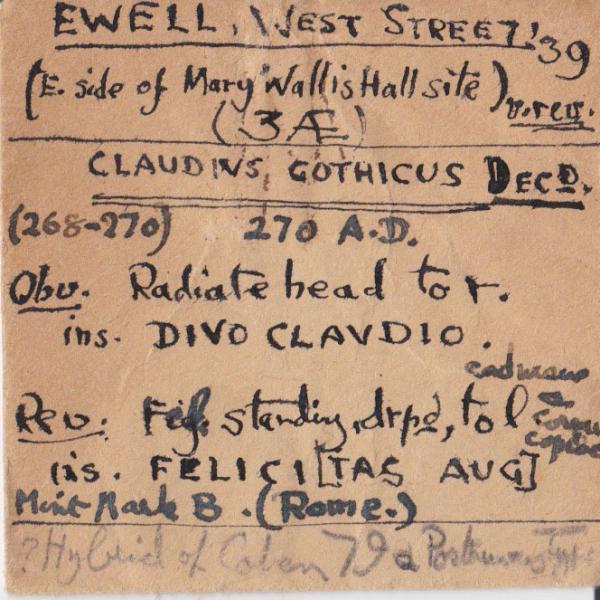 EWELL, WEST STREET, '39
(E. side of Mary Wallis Hall site) v. rev.
(3Æ)
CLAUDIUS GOTHICUS DECD.
(268-270) 270 A.D.
Obv. Radiate head to r.
ins. DIVO CLAVDIO.
Rev. Fig. standing, drpd, to l
cornu
copiae
ins. FELICI[TAS AUG]
Mint Mark B. (Rome.)
? Hybrid of Cohen 79 a Posthumous Type